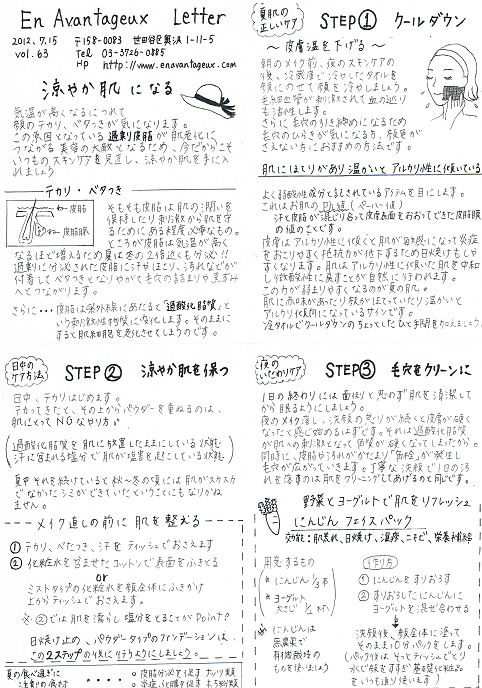 En Avantageux Letter
2012.7.15 〒158-0083 世田谷区奥沢1-11-5
vol.63 Tel 03-3726-0885
HP http://www.enavantageux.com
涼やか肌になる
気温が高くなるにつれて
顔のテカリ、ベタつきが気になります。
この原因となっている過剰皮脂が肌老化に
つながる美容の大敵となるため、今だからこそ
いつものスキンケアを見直し、涼やか肌を手に入
れましょう
テカリ・ベタつき
皮脂
皮脂腺
そもそも皮脂は肌の潤いを
保持したり刺激から肌を守
るためにある程度必要なもの。
ところが皮脂は気温が高く
なるほど増えるため夏は冬の2倍近くも分泌!!
過剰に分泌された皮脂に汗やほこり、汚れなどが
付着してベタつきとなりやがて毛穴の詰まりや黒ずみ
へとつながります。
さらに・・・皮脂は紫外線にあたると「過酸化脂質」と
いう刺激性物質に変化します。そのままに
すると肌細胞を老化させてしまうのです。
夏肌の
正しいケア
STEP① クールダウン
～皮膚温を下げる～
朝のメイク前、夜のスキンケアの
後、冷蔵庫で冷やしたタオルを
顔にのせて頬を冷やしましょう。
毛細血管が刺激されて血の巡り
も活性します。
さらに毛穴の引き締めになるため
毛穴のひらきが気になる方、顔色が
さえない方におすすめの方法です。
肌にほてりがあり温かいとアルカリ性に傾いている
よく弱酸性成分と記されているアイテムを目にします。
これはお肌のPh値(ペーハー値)
汗と皮脂が混じり合って皮膚表面をおおってできた皮脂膜
の値のことです。
皮膚はアルカリ性に傾くと肌が敏感になって炎症
をおこりやすく抵抗力が低下するため日焼けもしや
すくなります。肌はアルカリ性に傾いた肌を中和
し弱酸性に戻すことが自然に行われます。
この力が弱まりやすくなるのが夏の肌。
肌に赤味があったり頬がほてっていたり温かいと
アルカリ化に向になっているサインです。
冷タオルでクールダウンのちょっとしたひと手間を加えましょう。
日中の
ケア方法
STEP② 涼やか肌を保つ
日中、テカリはじめます。
テカってきたと、その上からパウダーを重ねるのは、
肌にとってNGなやり方。
(過酸化脂質を肌に放置したままにしている状態
汗に含まれる塩分で肌が塩害を起こしている状態)
真中それを続けていると秋〜冬の頃には肌がスカスカ
でながったシミができていたということにもなりかね
ません。
メイク直しの前に肌を整える
① テカリ、べたつき、汗をティッシュでおさえます
② 化粧水を含ませたコットンで表面をふきとる
or
ミストタイプの化粧水を顔全体にふきかけ
上からティッシュでおさえます。
※②では肌を潤らし塩分をとることがPoint?
日焼け止め、パウダータイプのファンデーションは、
この2ステップの後に行うようにしましょう。
夜の
いたわりケア
STEP③ 毛穴をクリーンに
1日の終わりには面ほうと思わず肌を清潔して
から眠るようにしましょう。
夜のメイク落し、洗顔の怠りが続くと皮膚が硬く
なったと感じ始めるはずです。それは過酸化脂質
が肌への刺激となって角質が硬くなってしまったから。
同時に、皮脂や汚れがかたまり「角栓」が発生し
毛穴が広がっていきます。丁寧な洗顔で1日の汚
れを落すのは肌をクリーニングしてあげるのと同じです。
野菜とヨーグルトで肌をリフレッシュ
にんじんフェイスパック
効能:肌荒れ、日焼け、湿疹、ニキビ、栄養補給
用意するもの
*にんじん 1/3本
*ヨーグルト
大さじ
※にんじんは
無農薬で
有機栽培の
ものを使いましょう
作り方
① にんじんをすりおろす
② すりおろしたにんじんに
ヨーグルトを混ぜ合わせる
洗顔後、顔全体に塗って
そのまま10分パックをします。
(パック後はそっとティッシュでとり
水で後すすぎ基礎化粧品を
いつも通り使います)